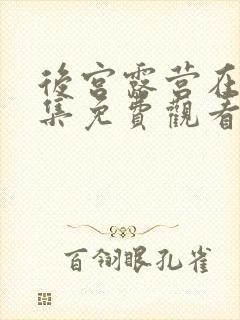 後宮露营在
集免費觀看
百翎眼孔雀